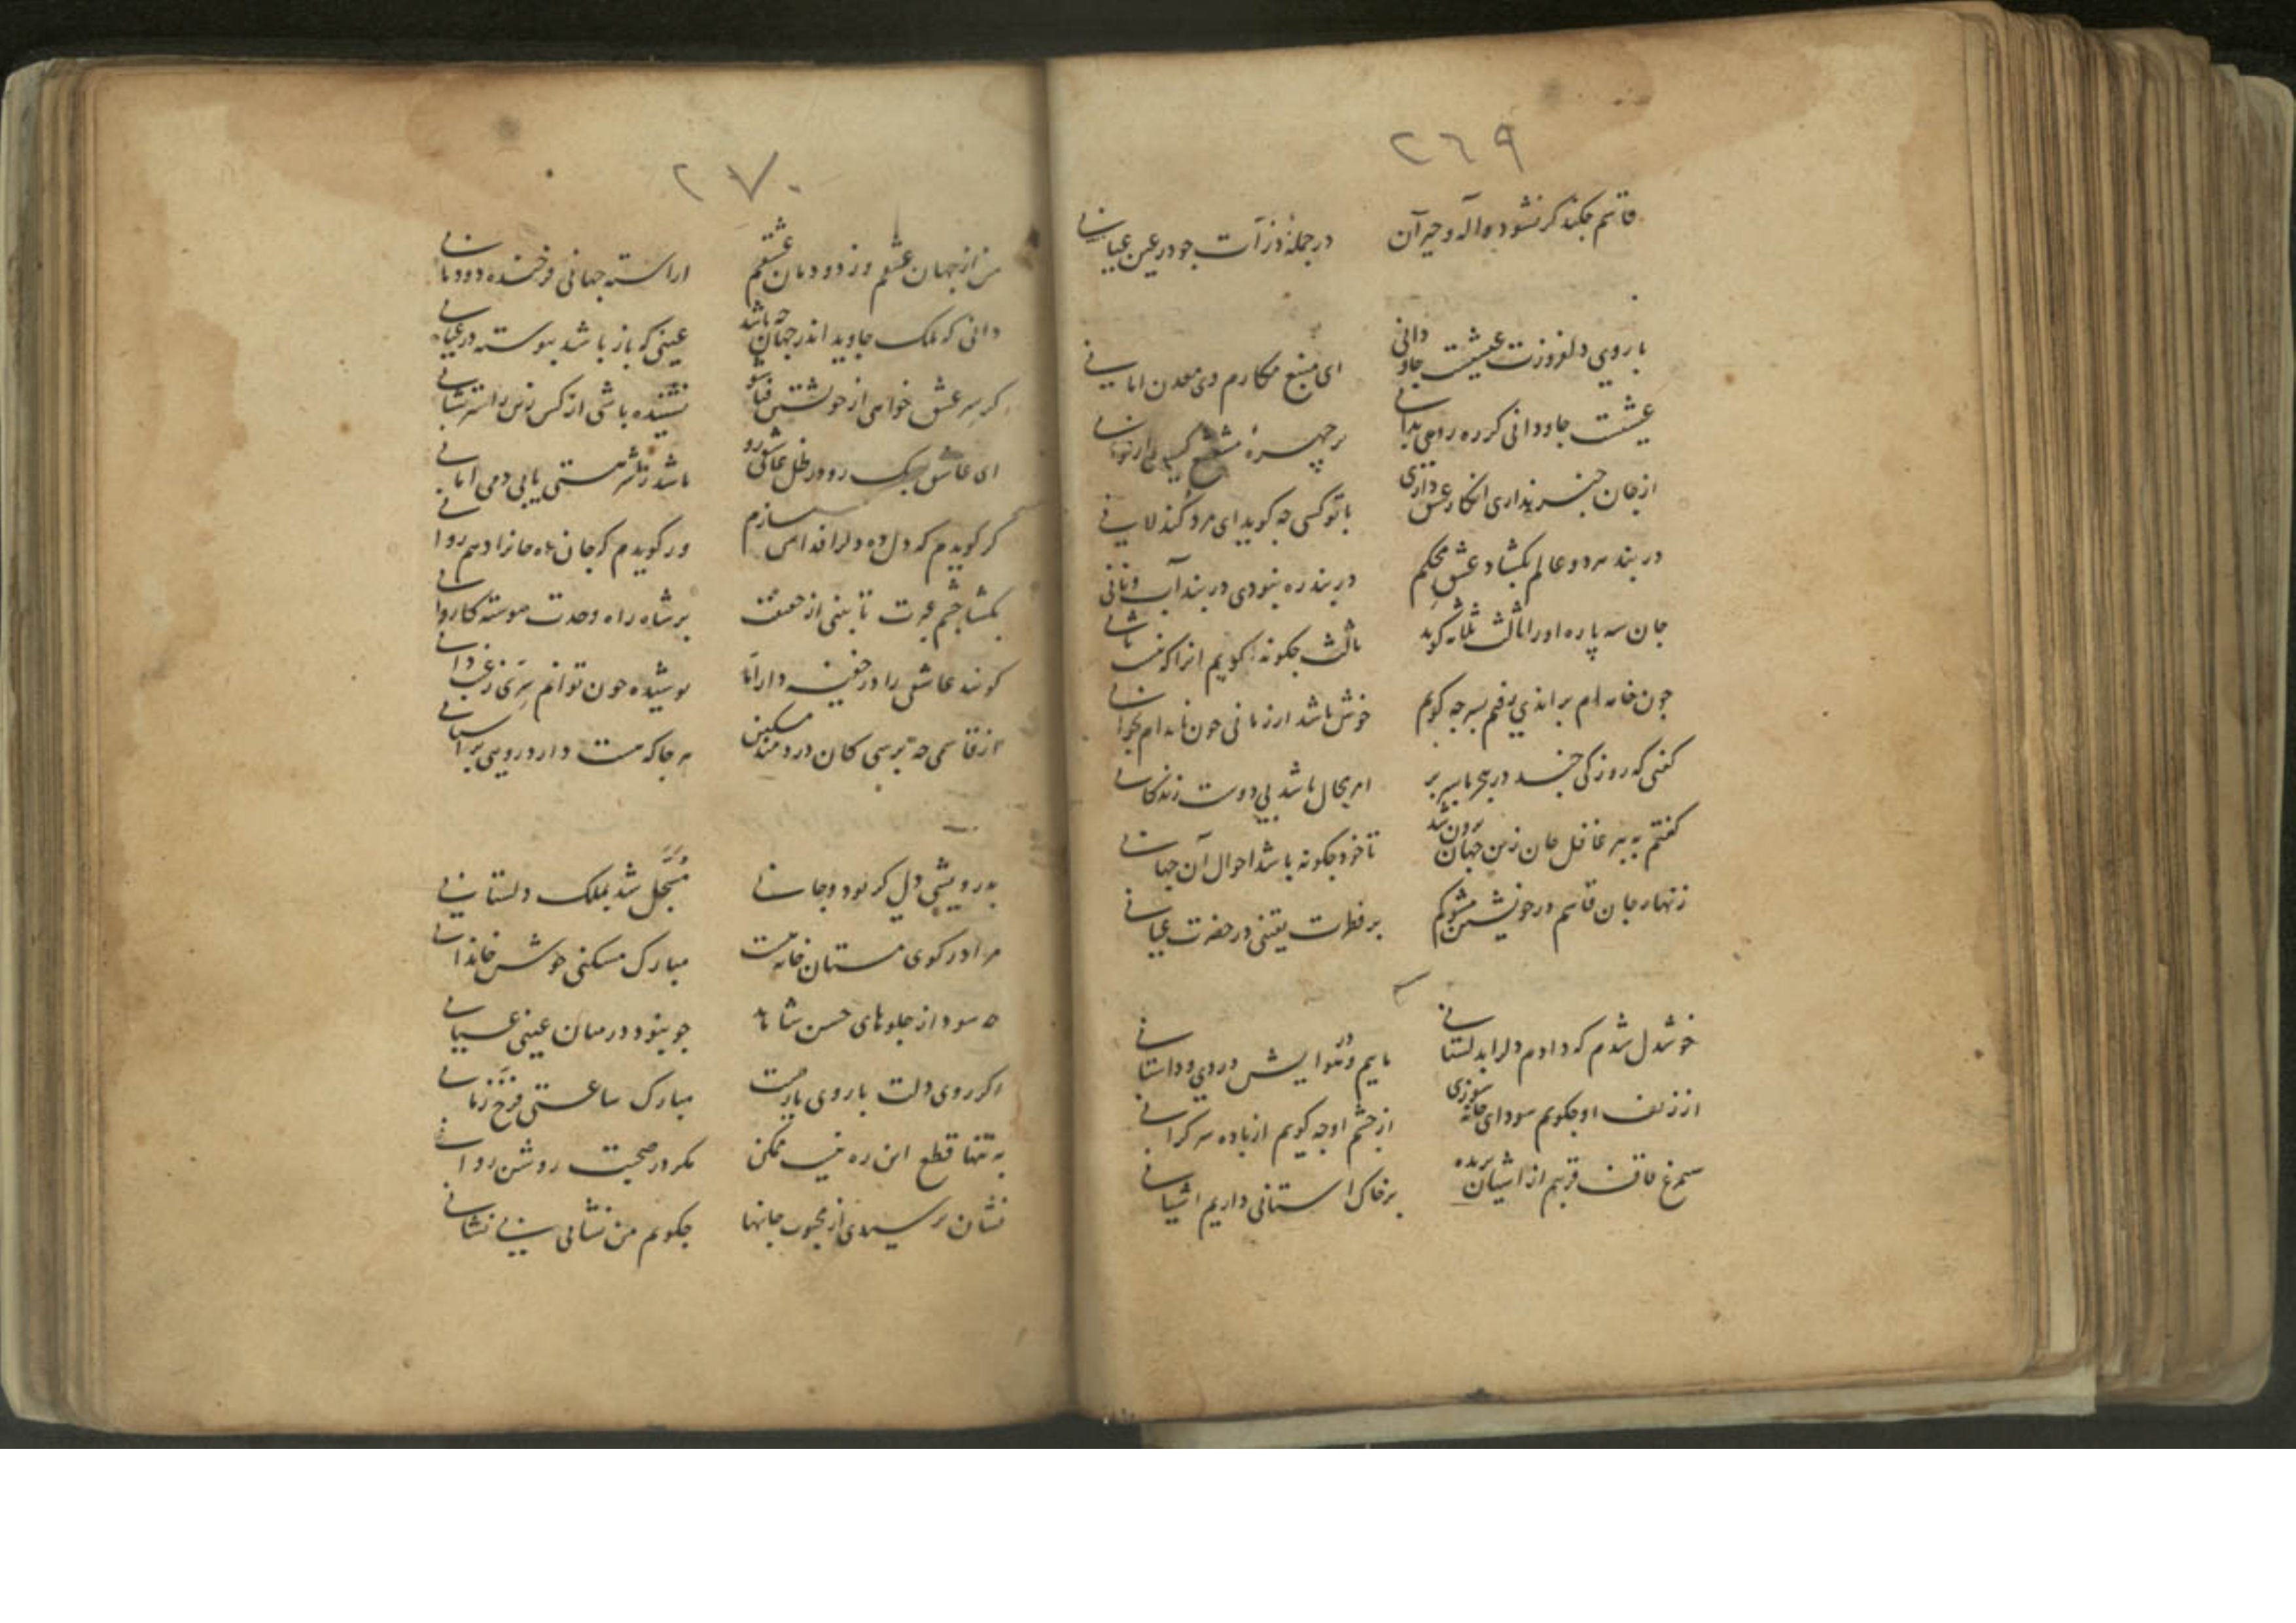 ٢٦٩
قاسم چکند کر نشود واله و حیران در جملهٔ ذرات چو در عین عیانی
با روی دلفروزت عیشیست جاودانی ای منبع مکارم وی معدن امانی
عیشیست جاودانی کر ره روی بدانی بر چهرهٔ
از جان خبر نداری انکار عشق داری با تو کسی چه کوید ای مرد کند لانی
در بند هر دو عالم بکشاد عشق محکم در بند ره نبودی در بند آب و نانی
جان سه پاره او را ثالث ثلاثه کوید ثالث چکونه کویم انرا که نیست ثانی
چون خانه ام بر اندی رفتم بسر چه کویم خوش باشد ار زمانی چون نامه ام بخوانی
کفتی که روزکی چند در هجر ما بسر بر امر محال باشد بی دوست زندکانی
کفتم به پیر غافل جان زین جهان برون شد تا خود چکونه باشد احوال آن جهانی
زنهار جان قاسم در خویشتن مشو کم بر فطرت یقینی در حضرت عیانی
خوشدل شدم که دادم دل را بدلستانی ماییم و در هوایش دردی و داستانی
از زلف او چکویم سودای خانه سوزی از چشم او چه کویم از باده سر کرانی
سیمرغ قاف قربم از اشیان پریده بر خاک استانی داریم اشیانی
٢٧٠
من از جهان عشقم وز دودمان عشقم اراسته جهانی فرخنده دودمانی
دانی که ملک جاوید اندر جهان چه باشد عینی که باز باشد پیوسته در عیانی
کر سر عشق خواهی از خویشتن فنا شو نشنیده باشی از کس زین راستر نشانی
ای عاشق سبک رو در ظل عاشقی رو باشد ز شر هستی یابی دمی امانی
کر کویدم که دل ده دل را فدای سازم ور کویدم که جان ده جانرا دهم روانی
بکشا چشم عبرت تا بینی از حقیقت بر شاه راه وحدت پیوسته کاروانی
کویند عاشقی را در خفیه دار اما پوشیده چون توانم سری ز غیب دانی
از قاسمی چه پرسی کان دردمند مسکین هر جا که هست دارد رویی بر آستانی
به درویشی دلی کر بود و جانی مسجل شد بملک دلستانی
مرا در کوی مستان خانه هست مبارک مسکنی خوش خاندانی
چه سود از جلوهای حسن شاهد چو نبود در میان عینی عیانی
اکر روی دلت با روی یارست مبارک ساعتی فرخ زمانی
به تنها قطع این ره نیست ممکن مکر در صحبت روشن روانی
نشان پرسیدی از محبوب جانها چکویم من نشانی بی نشانی